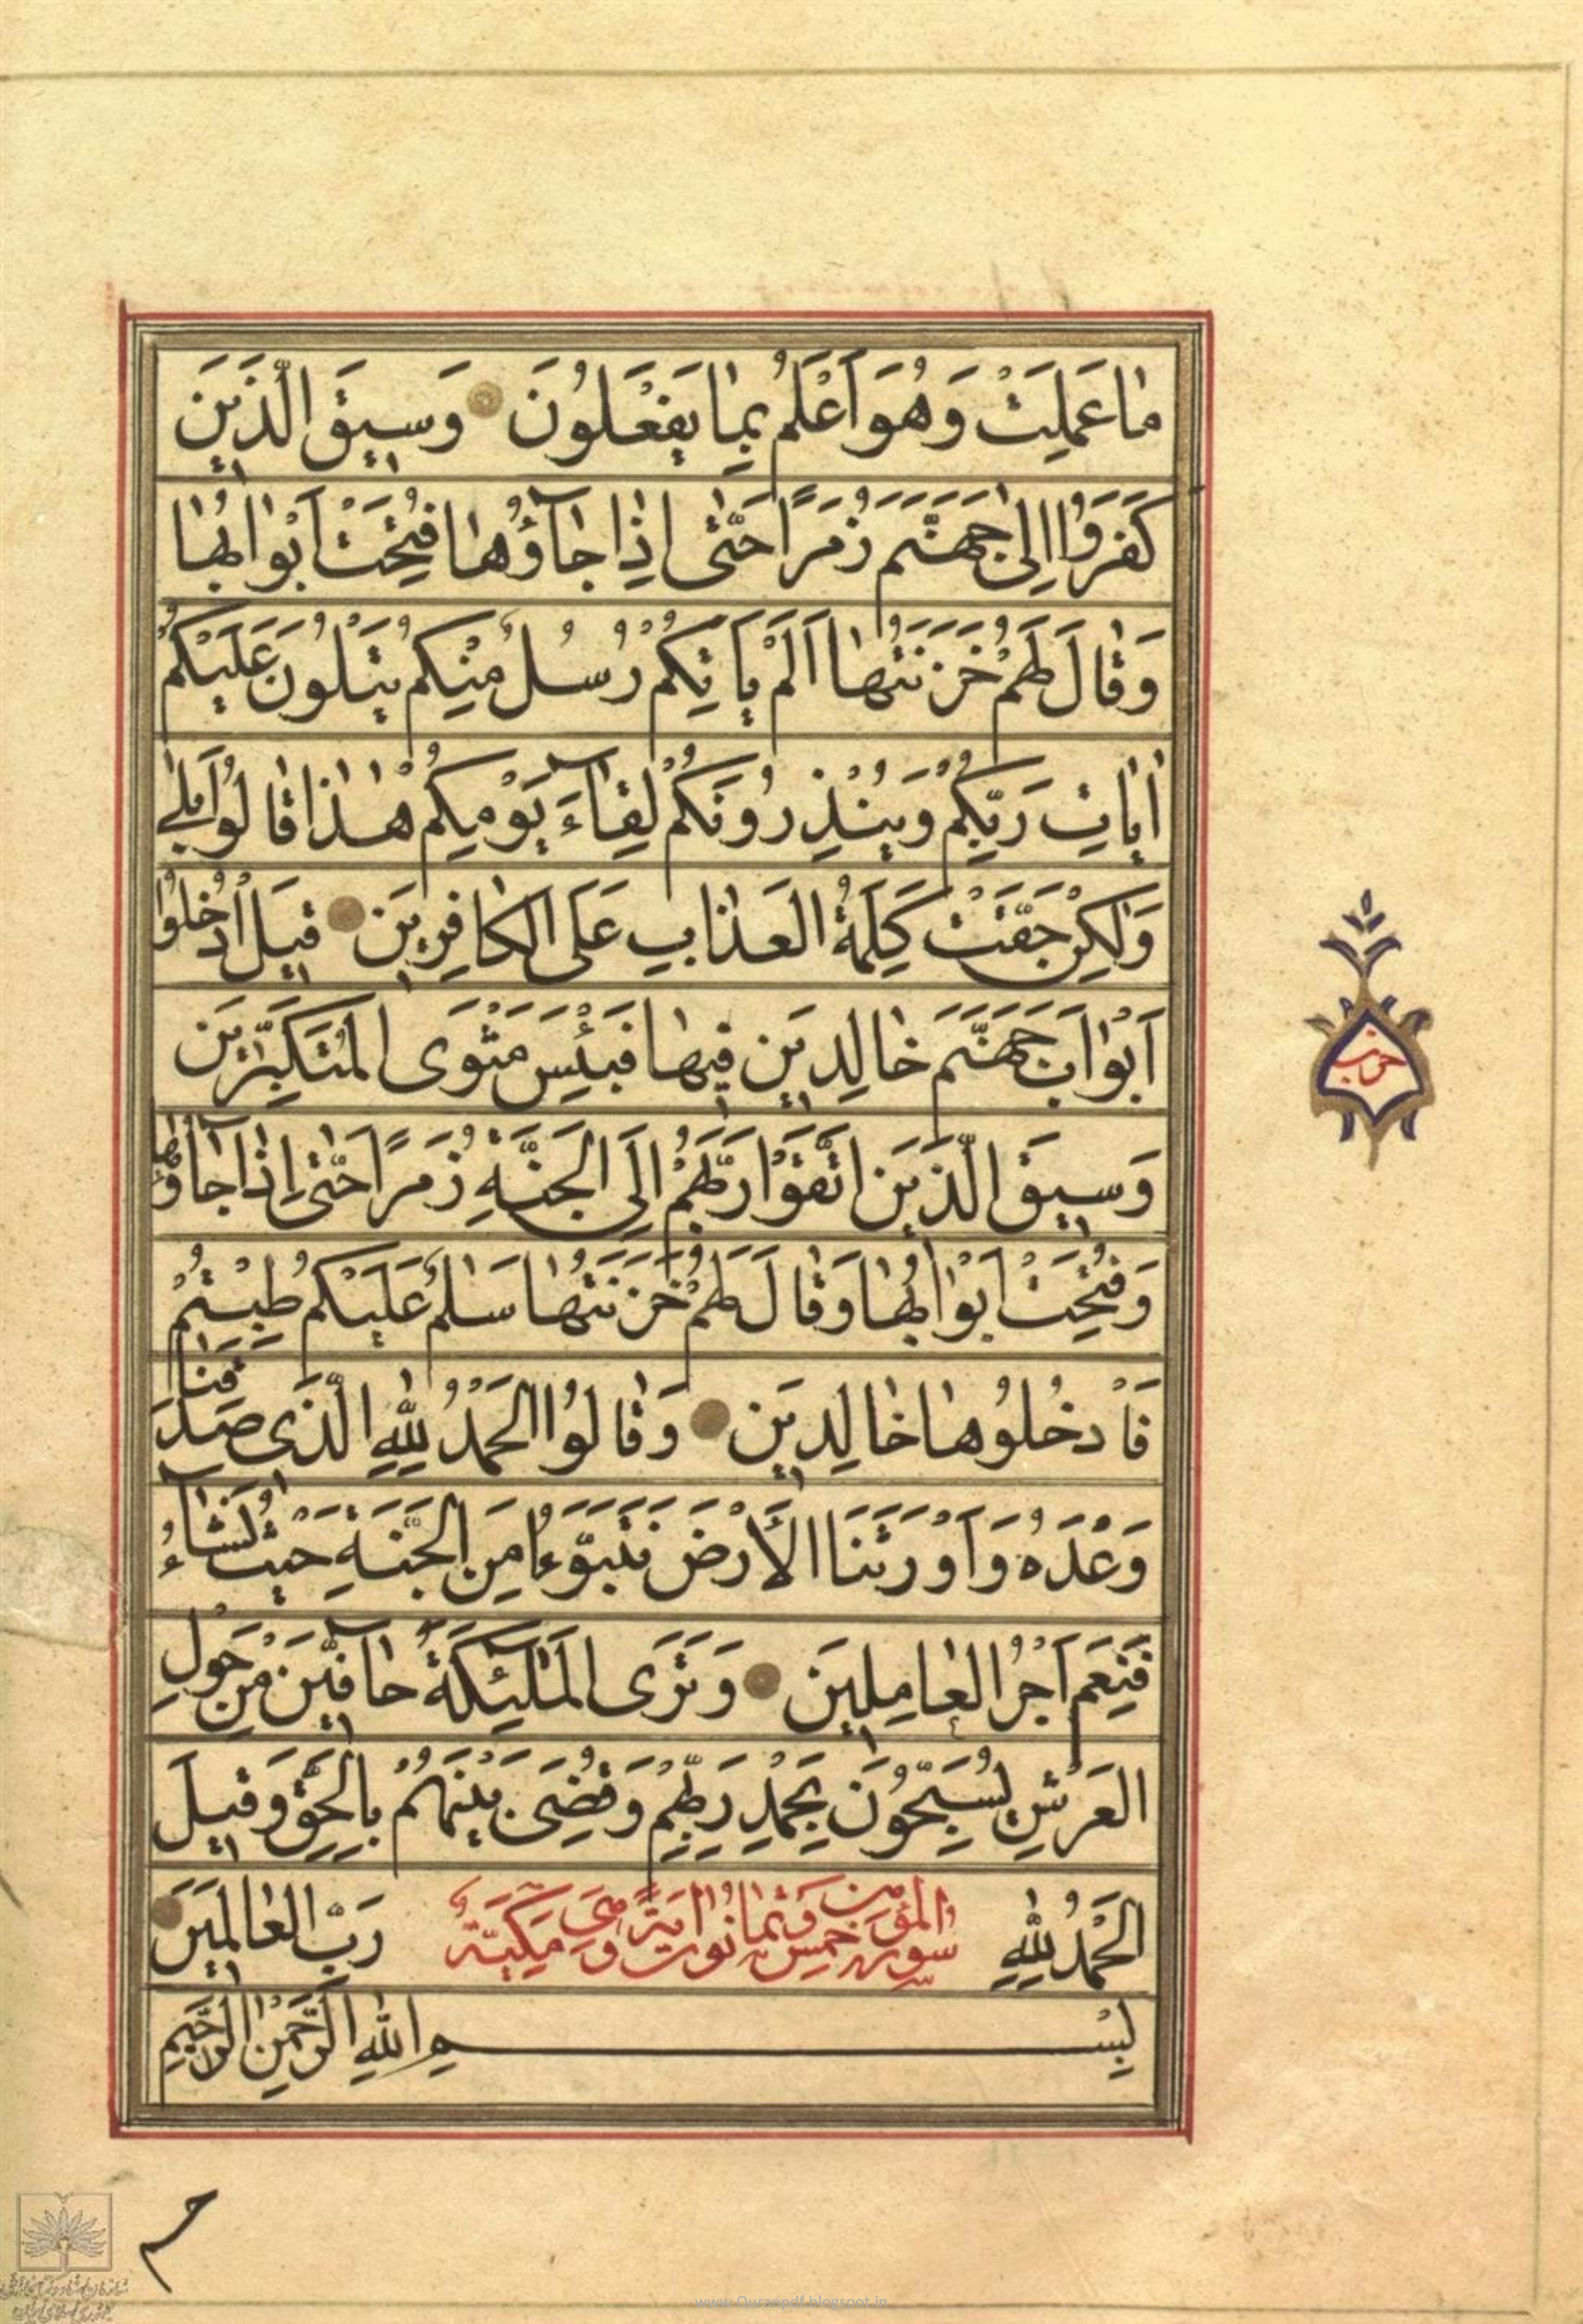 مٰا عَمِلَتْ وَهُوَ اَعْلَمُ بِمٰا يَفْعَلُونَ وَسِيقَ الَّذِينَ
كَفَرُوا اِلىٰ جَهَنَّمَ زُمَرًا حَتّٰى اِذٰا جٰآؤُهٰا فُتِحَتْ اَبْوٰابُهٰا
وَقٰالَ لَهُمْ خَزَنَتُهٰا اَلَمْ يَأْتِكُمْ رُسُلٌ مِنْكُمْ يَتْلُونَ عَلَيْكُمْ
اٰيٰاتِ رَبِّكُمْ وَيُنْذِرُونَكُمْ لِقٰآءَ يَوْمِكُمْ هٰذٰا قٰالُوا بَلىٰ
وَلٰكِنْ حَقَّتْ كَلِمَةُ الْعَذٰابِ عَلَى الْكٰافِرِينَ قِيلَ ادْخُلُوا
اَبْوٰابَ جَهَنَّمَ خٰالِدِينَ فِيهٰا فَبِئْسَ مَثْوَى الْمُتَكَبِّرِينَ
وَسِيقَ الَّذِينَ اتَّقَوْا رَبَّهُمْ اِلَى الْجَنَّةِ زُمَرًا حَتّٰى اِذٰا جٰآؤُهٰا
وَفُتِحَتْ اَبْوٰابُهٰا وَقٰالَ لَهُمْ خَزَنَتُهٰا سَلٰمٌ عَلَيْكُمْ طِبْتُمْ
فَادْخُلُوهٰا خٰالِدِينَ وَقٰالُوا الْحَمْدُ لِلّٰهِ الَّذِى صَدَقَنٰا
وَعْدَهُ وَاَوْرَثَنَا الْاَرْضَ نَتَبَوَّءُ مِنَ الْجَنَّةِ حَيْثُ نَشٰآءُ
فَنِعْمَ اَجْرُ الْعٰامِلِينَ وَتَرَى الْمَلٰٓئِكَةَ حٰآفِّينَ مِنْ حَوْلِ
الْعَرْشِ يُسَبِّحُونَ بِحَمْدِ رَبِّهِمْ وَقُضِىَ بَيْنَهُمْ بِالْحَقِّ وَقِيلَ
الْحَمْدُ لِلّٰهِ رَبِّ الْعٰالَمِينَ
سورة المؤمن خمس وثمانون اية وهى مكية
بِسْمِ اللّٰهِ الرَّحْمٰنِ الرَّحِيمِ
حزب
حم
www.Quranpdf.blogspot.in